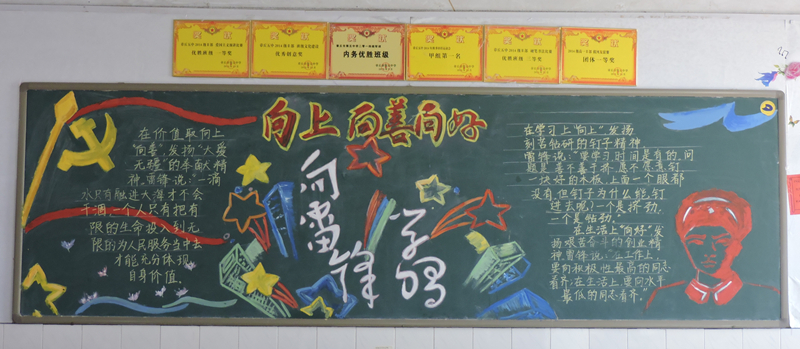 奖状
优胜班级
奖状
优秀创意奖
奖状
内务优胜班级
奖状
甲组第一名
奖状
优胜班级 二等奖
奖状
团体一等奖
向上 向善 向好
向雷锋
学习
在价值取向上
"向善",发扬"大爱
无疆"的奉献精
神。雷锋说:"一滴
水只有融进大海才不会
干涸,一个人只有把有
限的生命投入到无
限的为人民服务当中去
才能充分体现
自身价值。
在学习上"向上",发扬
刻苦钻研的钉子精神,
雷锋说:"要学习时间是有的,问
题是善不善于挤,愿不愿意钉
一块好的木板,上面一个眼都
没有,但钉子为什么能钉
进去呢?一个是挤劲,
一个是钻劲。
在生活上"向好"发
扬艰苦奋斗的创业精
神。雷锋说:"在工作上,
要向积极性最高的同志
看齐,在生活上,要向水平
最低的同志看齐。"